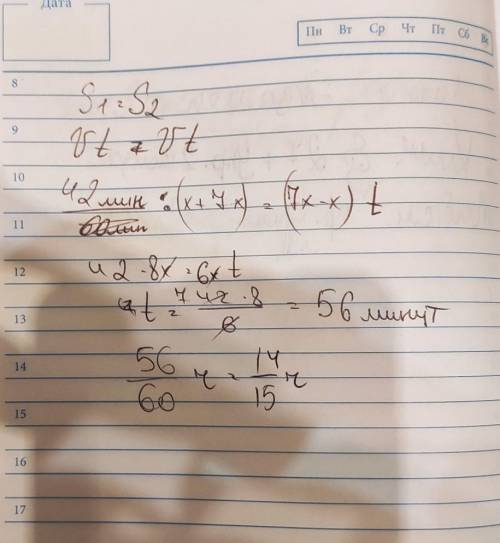 Дата
Пн Вт Ср Чт Пт Сб Вс
8
S1 = S2
9
Vt = Vt
10
42 мин/60 мин : (x + 7x) = (7x - x) t
11
12
42 · 8x = 6x t
t = 42 · 8/6 = 56 минут
13
14
56/60 ч = 14/15 ч
15
16
17